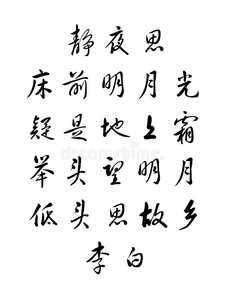 静夜思
床前明月光
疑是地上霜
举头望明月
低头思故乡
李白
dreamstime